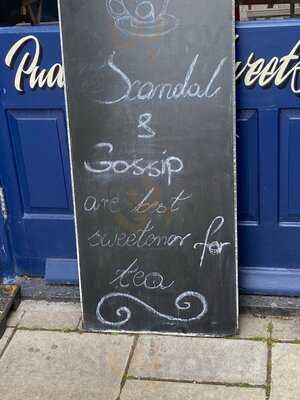 Pud
weet
Scandal
&
Gossip
are best
sweetener for
tea